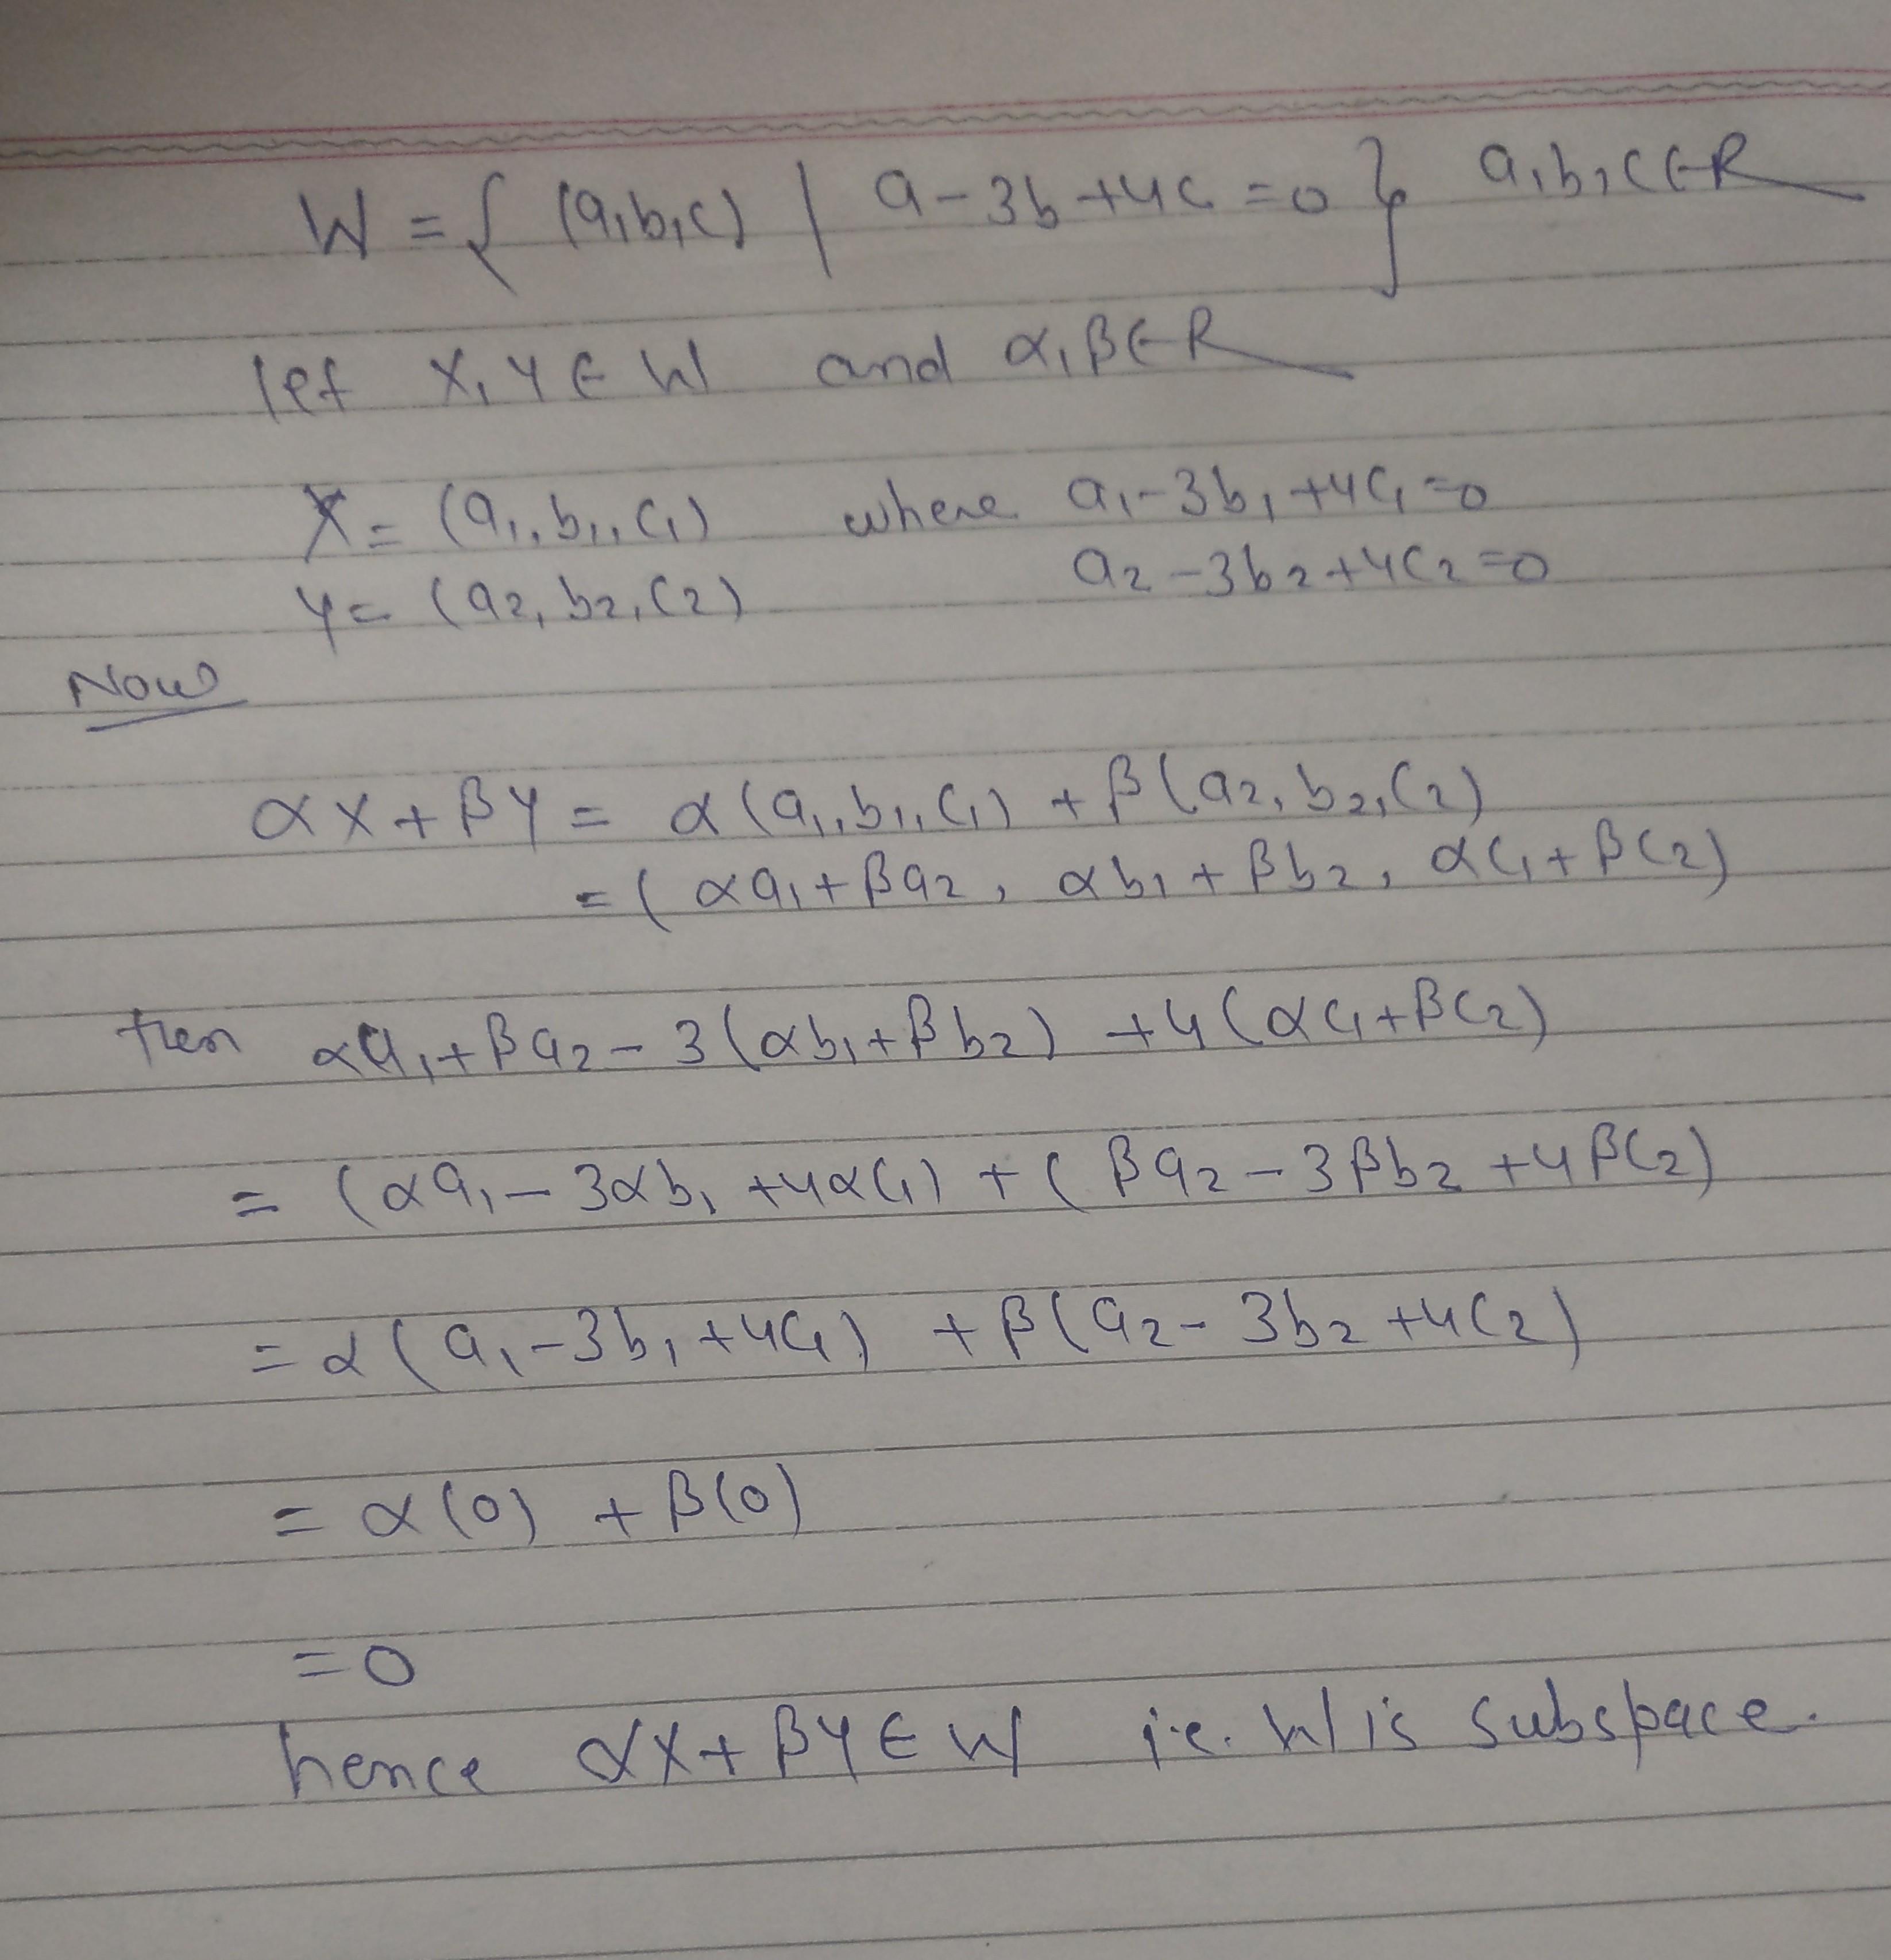 W = { (a,b,c) | a-3b+4c = 0 } a,b,c ∈ R
let X, Y ∈ W and α, β ∈ R
X = (a₁, b₁, c₁) where a₁-3b₁+4c₁=0
Y = (a₂, b₂, c₂) a₂-3b₂+4c₂=0
Now
αX + βY = α(a₁, b₁, c₁) + β(a₂, b₂, c₂)
= (αa₁+βa₂, αb₁+βb₂, αc₁+βc₂)
then αa₁+βa₂-3(αb₁+βb₂) +4(αc₁+βc₂)
= (αa₁-3αb₁+4αc₁) + (βa₂-3βb₂+4βc₂)
= α(a₁-3b₁+4c₁) + β(a₂-3b₂+4c₂)
= α(0) + β(0)
= 0
hence αX+βY ∈ W i.e. W is subspace.